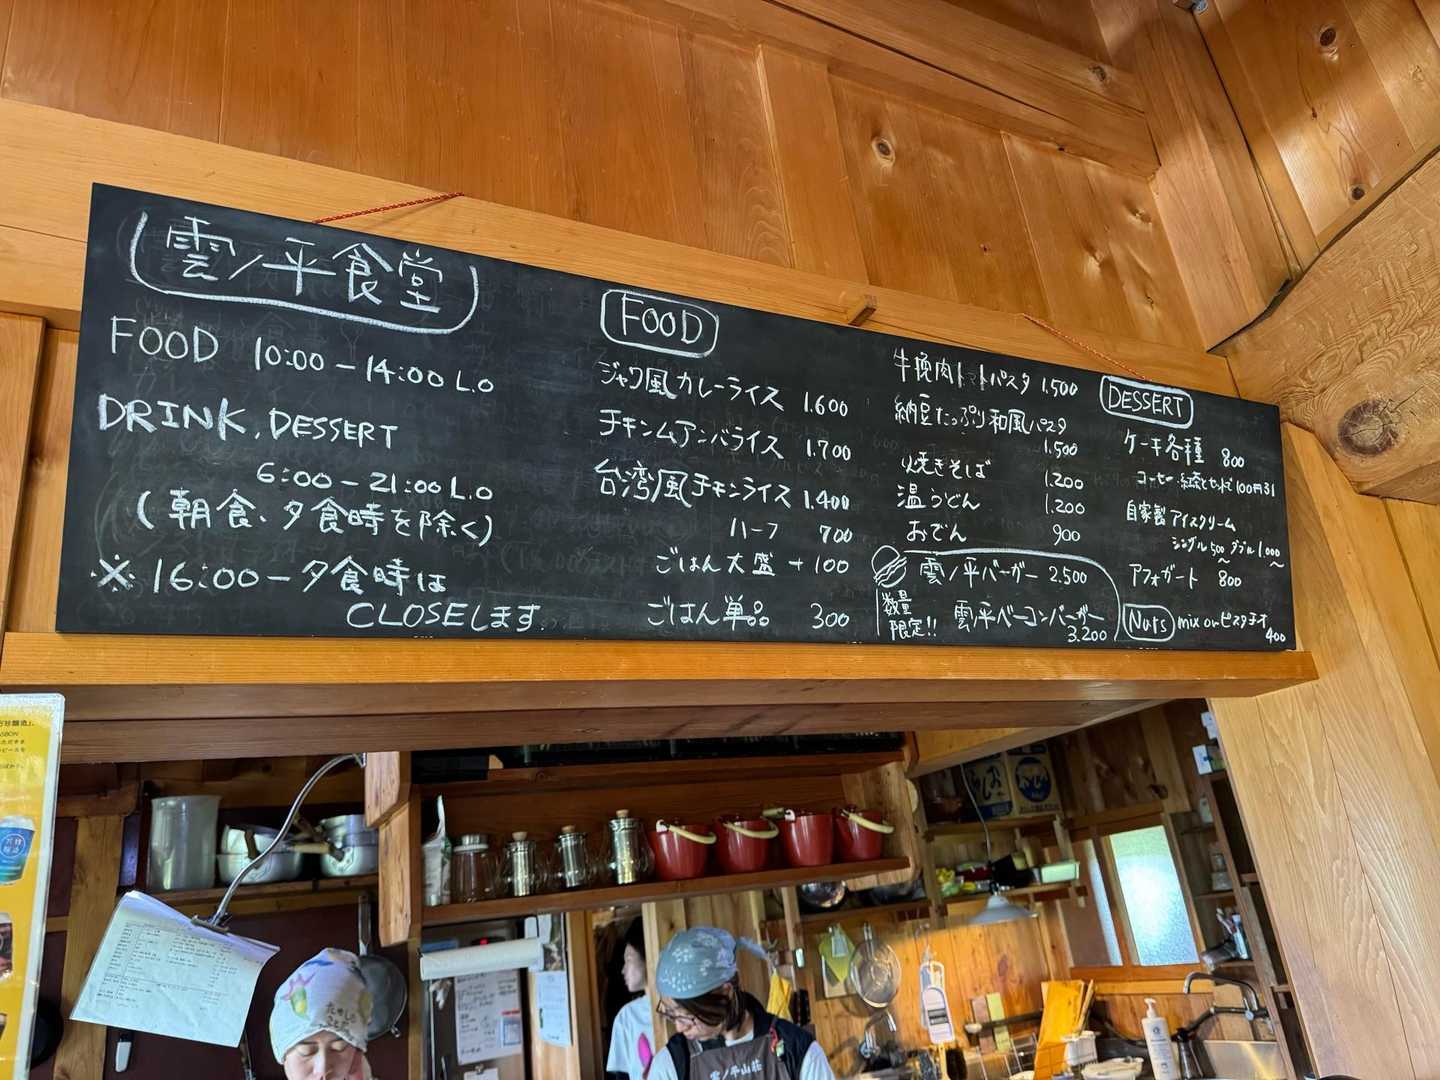 雲ノ平食堂
FOOD 10:00-14:00 L.O
DRINK, DESSERT
6:00-21:00 L.O
(朝食、夕食時を除く)
※16:00-夕食時は
CLOSEします.
FOOD
ジャワ風カレーライス 1.600
チキンムアンバライス 1.700
台湾風チキンライス 1.400
ハーフ 700
ごはん大盛 +100
ごはん単品 300
牛挽肉トマトパスタ 1.500
納豆たっぷり和風パスタ
1.500
焼きそば 1.200
温うどん 1.200
おでん 900
雲ノ平バーガー 2.500
数量
限定!!
雲ノ平ベーコンバーガー
3.200
DESSERT
ケーキ各種 800
コーヒー・紅茶とセットで100円引
自家製アイスクリーム
シングル500~ ダブル1.000~
アフォガート 800
Nuts mix or ピスタチオ
400
雲ノ平山荘